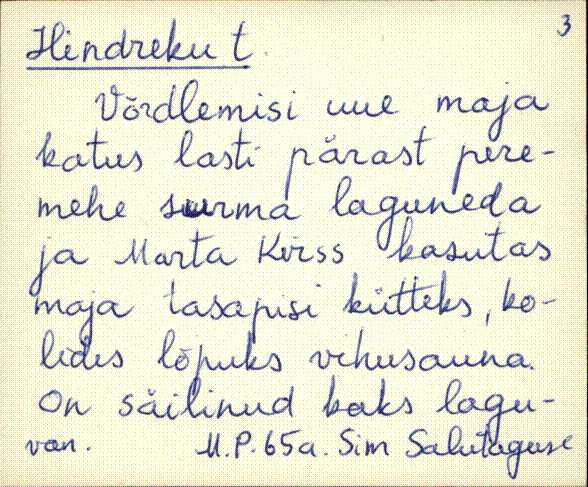 3
Hindreku t.
Võrdlemisi uue maja
katus lasti pärast pere-
mehe surma laguneda
ja Marta Kirss kasutas
maja tasapisi kütteks, ko-
lides lõpuks vihusauna.
On säilinud kaks lagu-
van. M.P. 65a. Sim Salutaguse